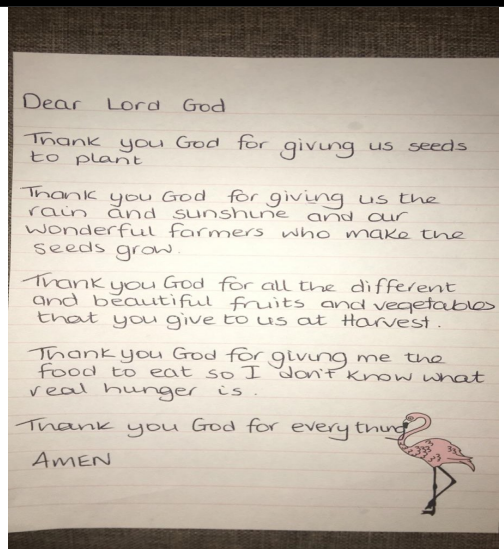 Dear Lord God
Thank you God for giving us seeds
to plant
Thank you God for giving us the
rain and sunshine and our
wonderful farmers who make the
seeds grow.
Thank you God for all the different
and beautiful fruits and vegetables
that you give to us at Harvest.
Thank you God for giving me the
food to eat so I don't know what
real hunger is.
Thank you God for everything
AMEN